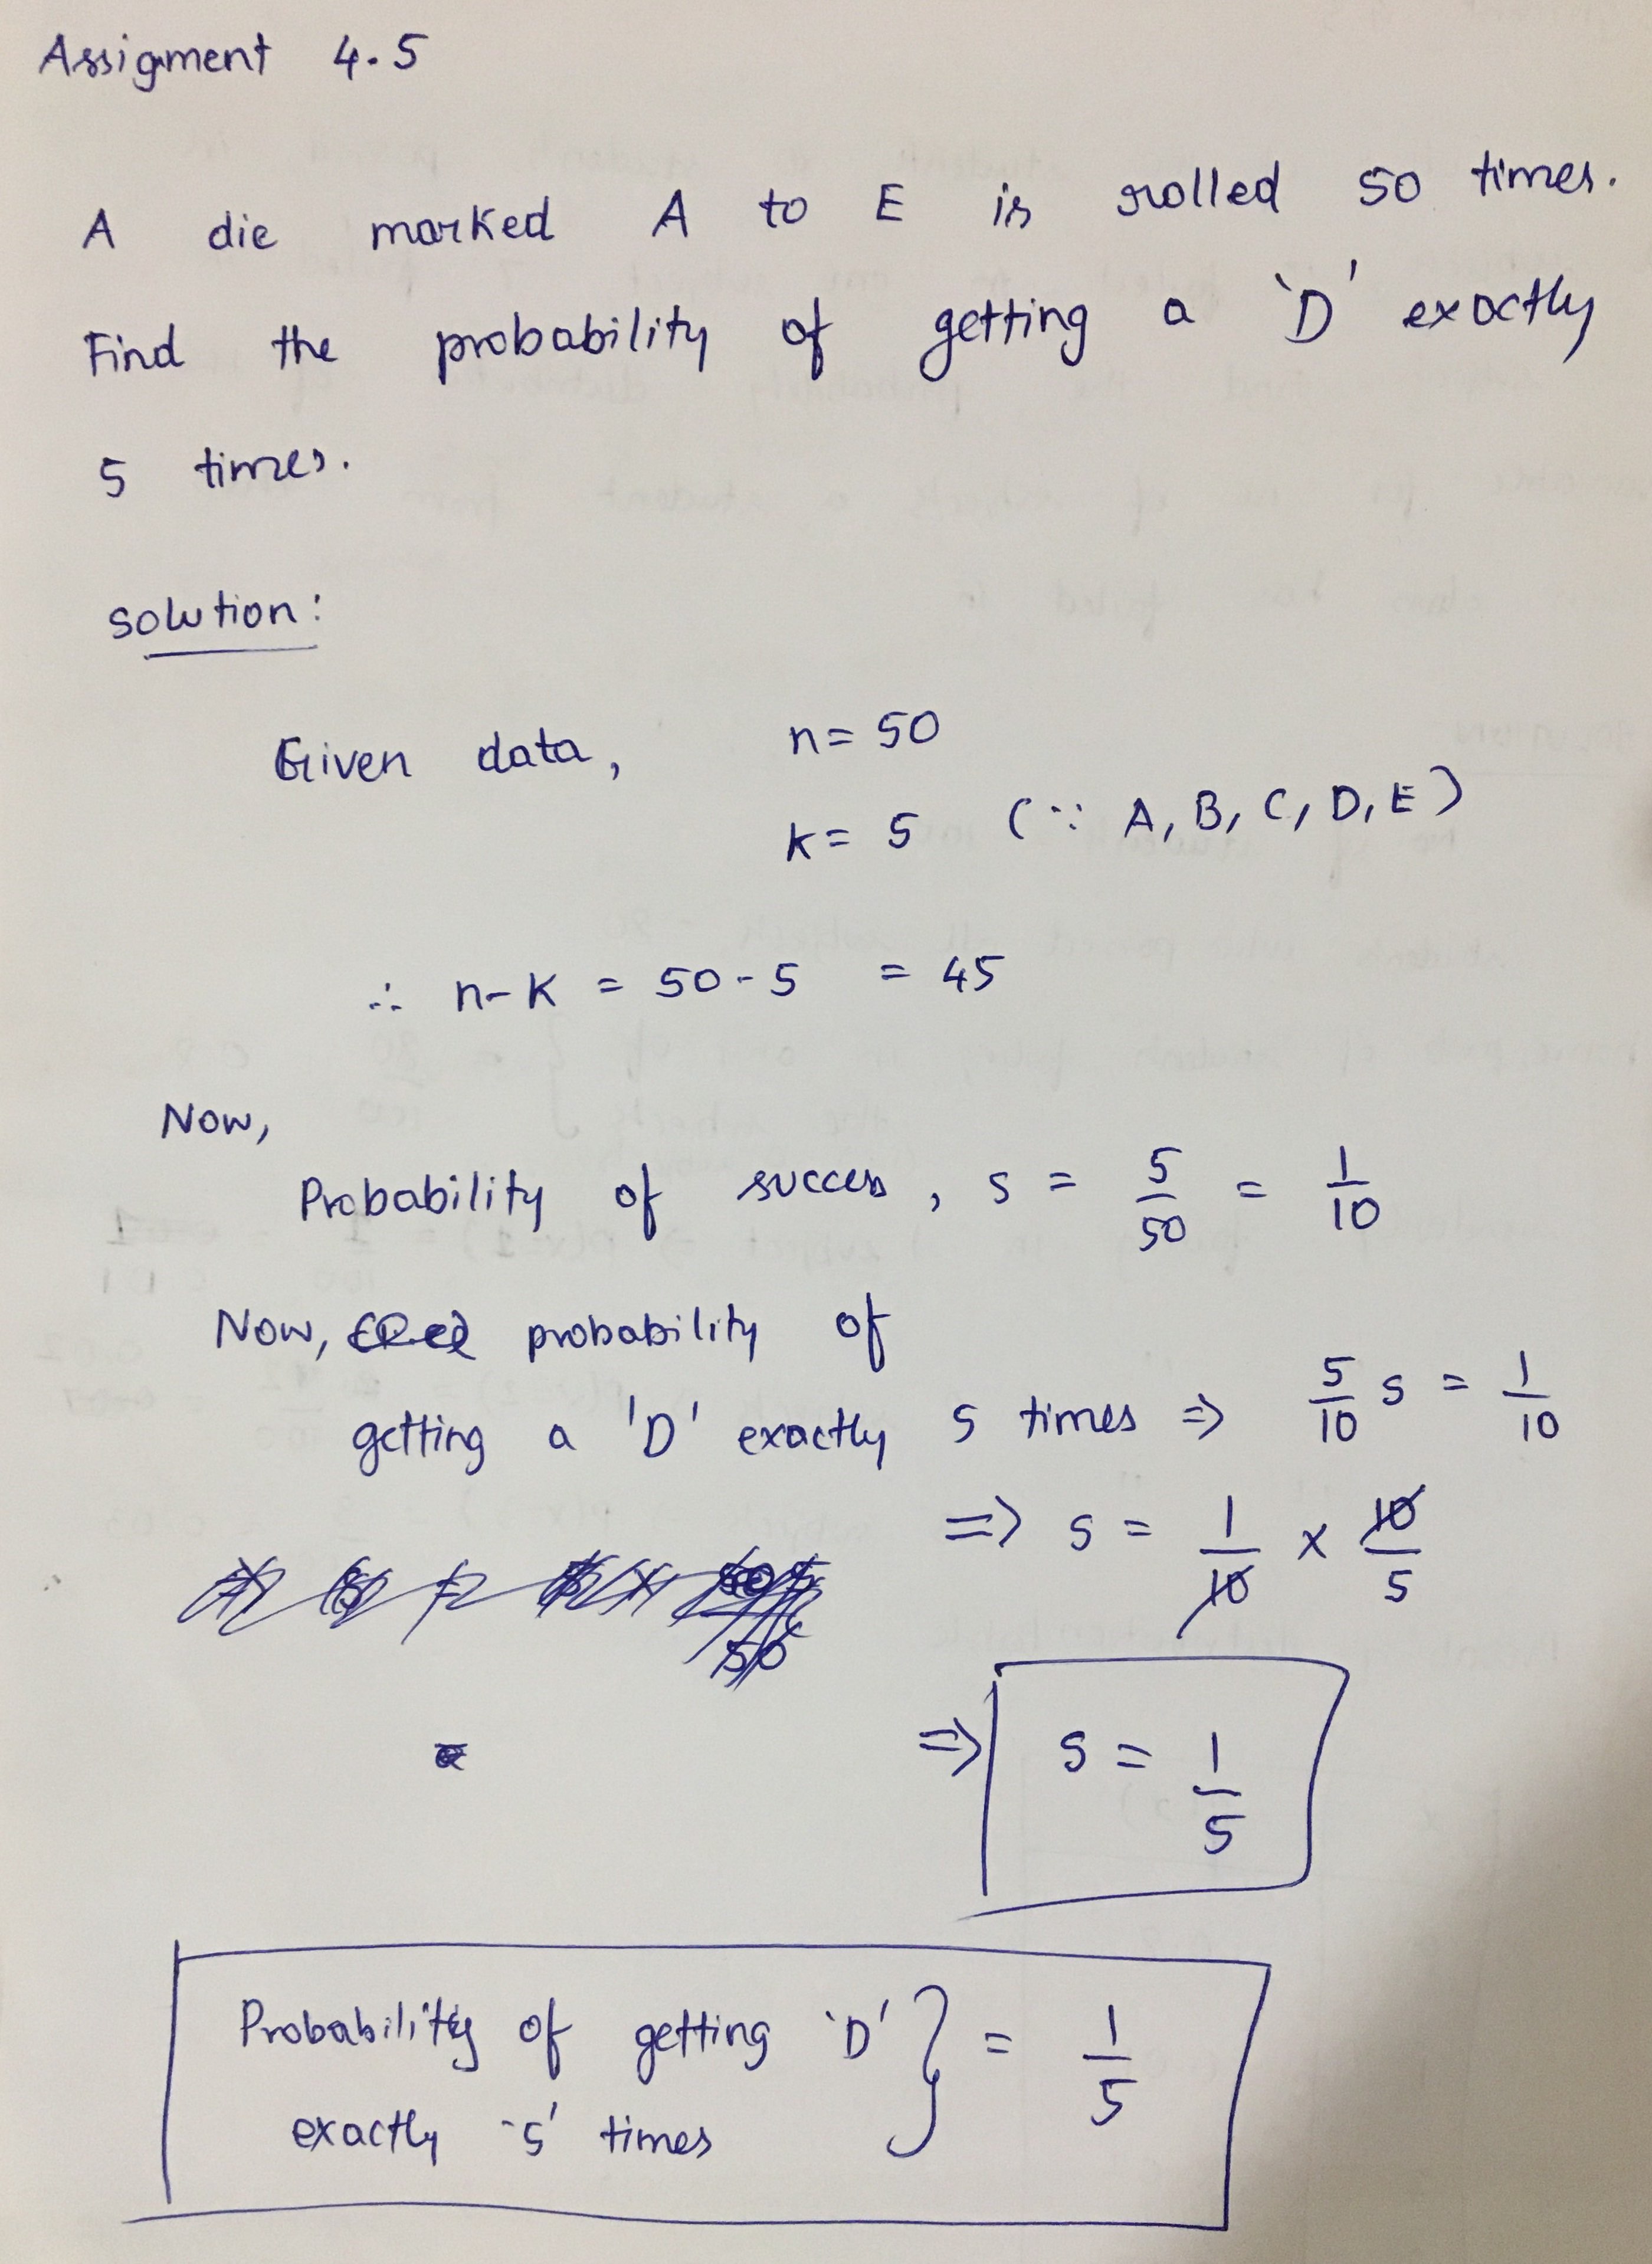 Assigment 4.5
A die marked A to E is rolled 50 times.
Find the probability of getting a 'D' exactly
5 times.
Solution:
Given data, n = 50
k = 5 (∵ A, B, C, D, E)
∴ n-k = 50-5 = 45
Now,
Probability of success, s = 5/50 = 1/10
Now, probability of
getting a 'D' exactly 5 times ⇒ 5/10 s = 1/10
⇒ s = 1/10 × 10/5
⇒ s = 1/5
Probability of getting 'D' } = 1/5
exactly '5' times